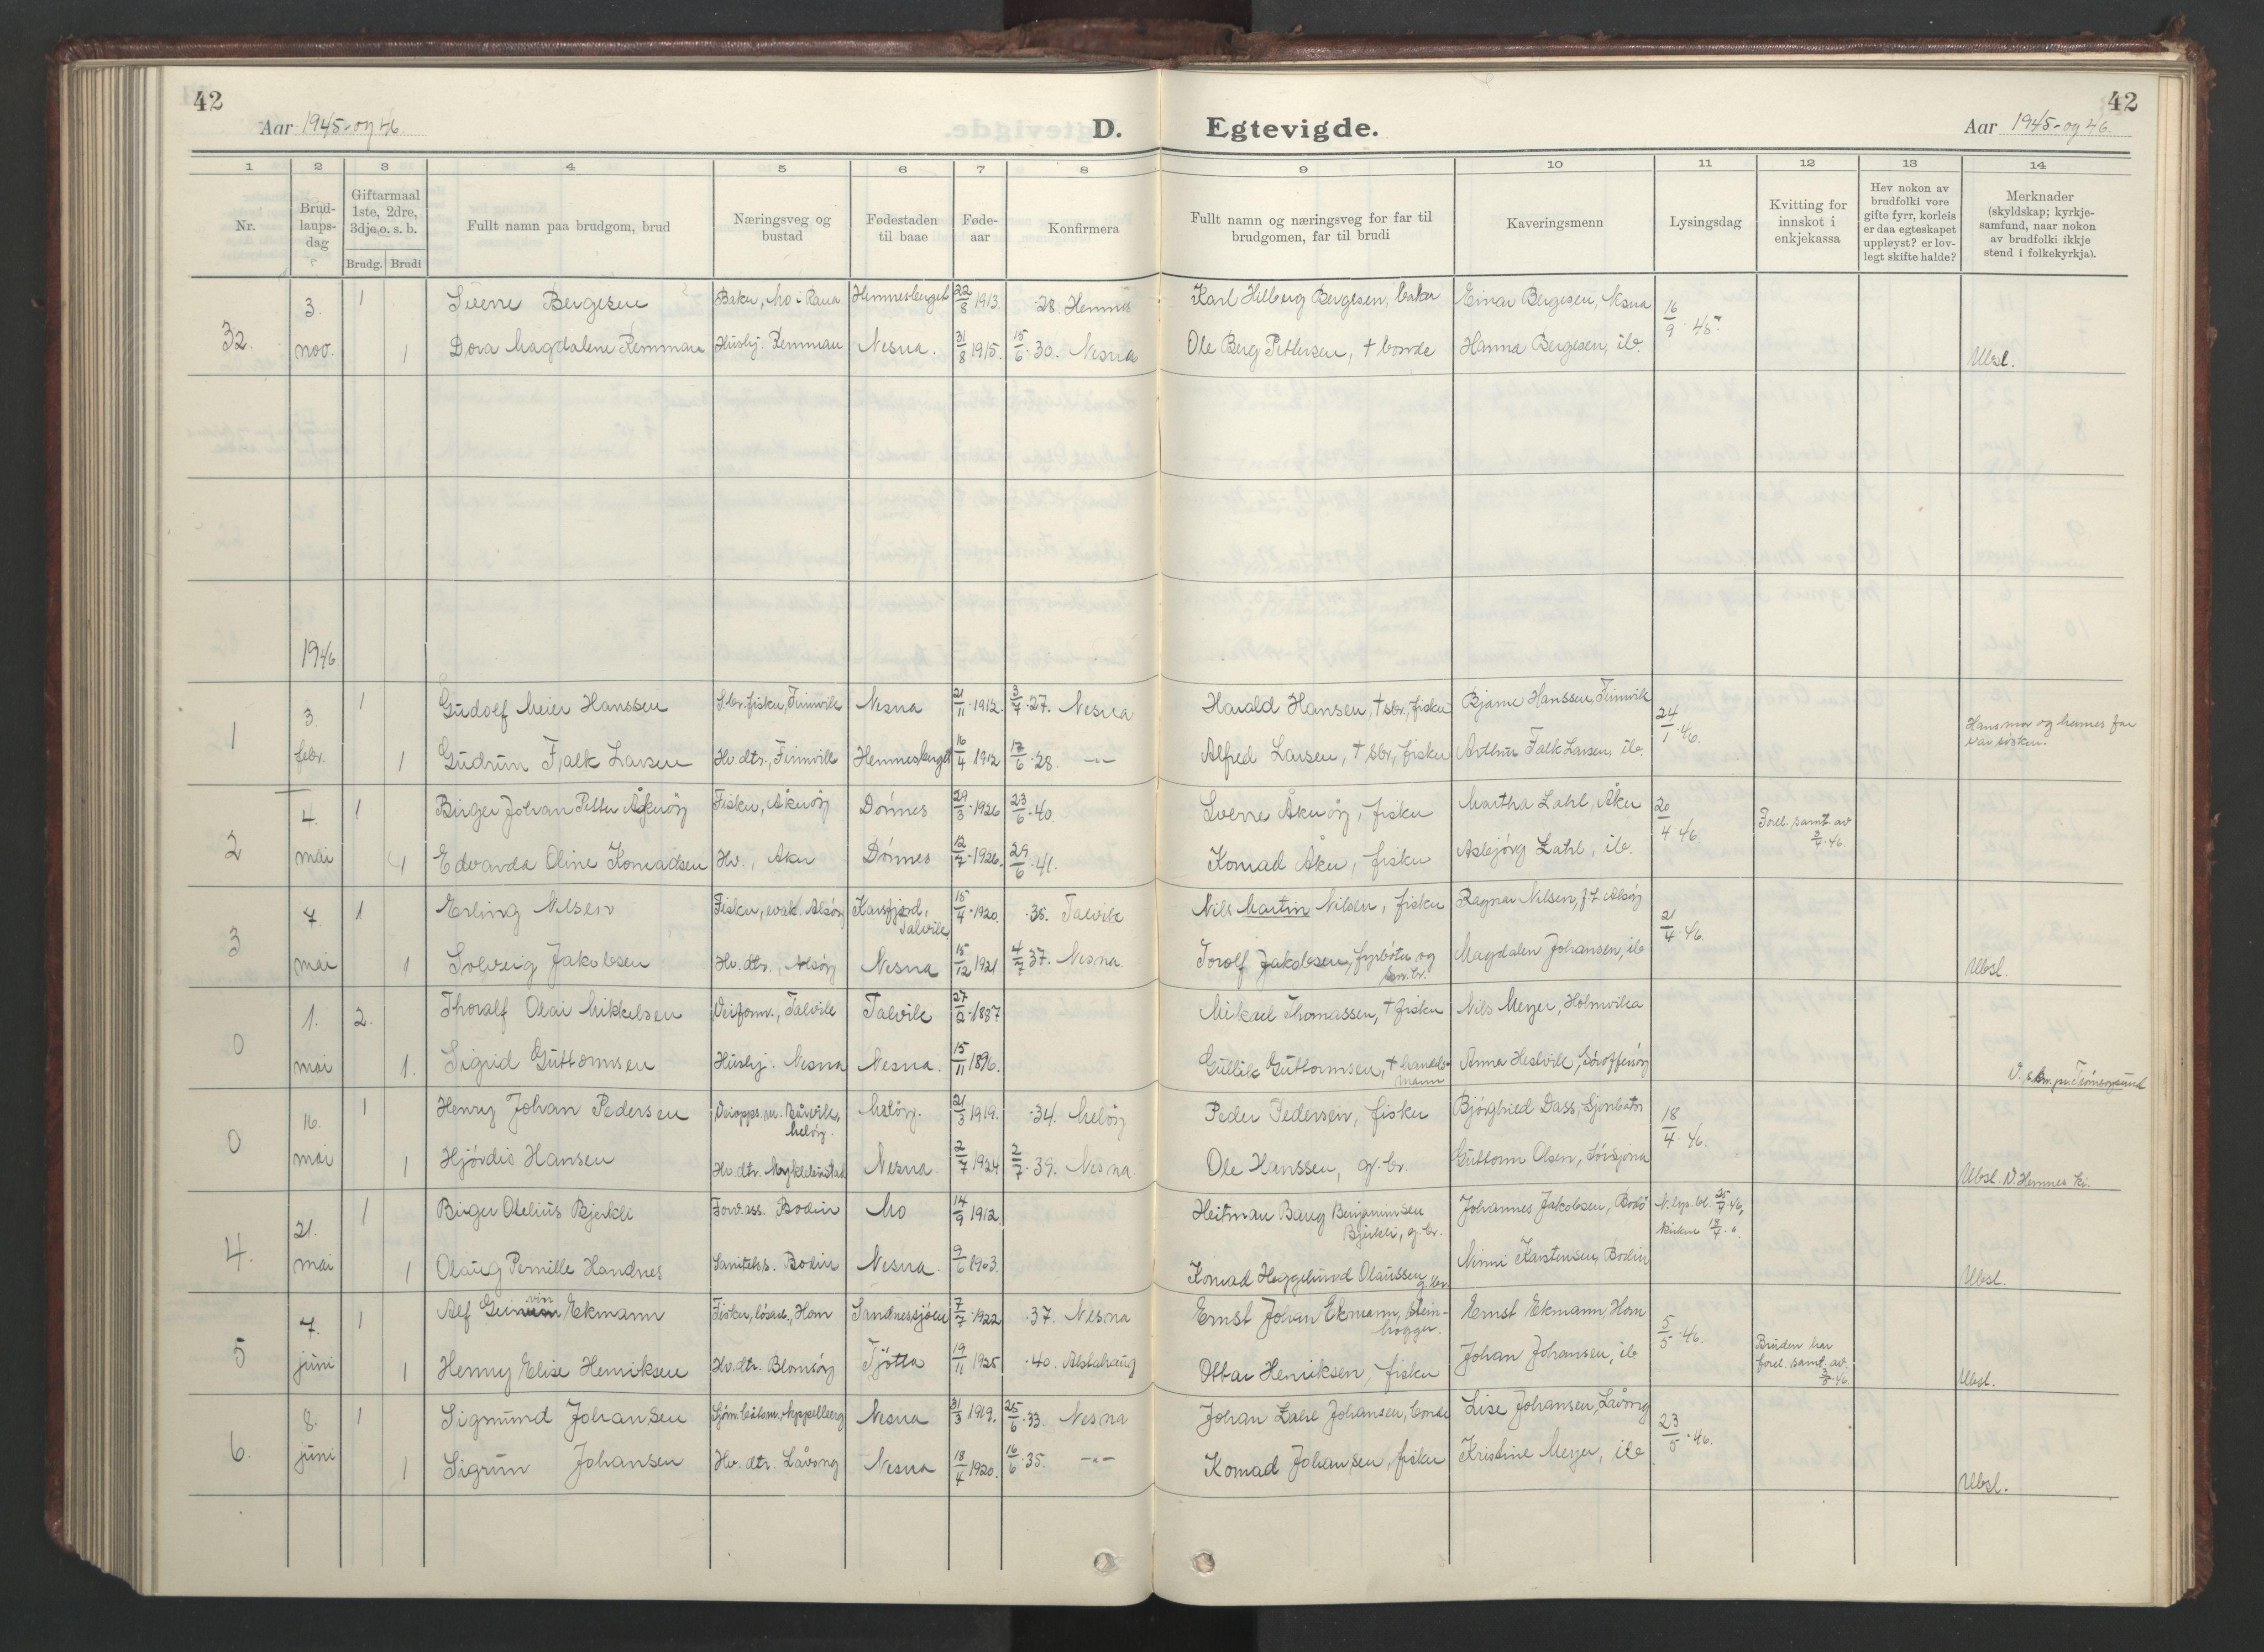 42
Aar 1945-og 46.
D.
Egtevigde.
42
Aar 1945-og 46.
1 2 3 4 5 6 7 8 9 10 11 12 13 14
Nr.
Brud-
laups-
dag
Giftarmaal
1ste, 2dre,
3dje o. s. b.
Brudg. Brudi
Fullt namn paa brudgom, brud
Næringsveg og
bustad
Fødestaden
til baae
Føde-
aar
Konfirmera
Fullt namn og næringsveg for far til
brudgomen, far til brudi
Kaveringsmenn
Lysingsdag
Kvitting for
innskot i
enkjekassa
Hev nokon av
brudfolki vore
gifte fyrr, korleis
er daa egteskapet
uppløyst? er lov-
legt skifte halde?
Merknader
(skyldskap; kyrkje-
samfund, naar nokon
av brudfolki ikkje
stend i folkekyrkja).
32. 3. nov.
1 Sverre Bergesen Baker, Mo i Rana Hemnesberget 22/8 1913. 28. Hemnes Karl Hilberg Bergesen, baker Einar Bergesen, Nesna 16/9 45.
1 Dora Magdalene Remman Hushj. Remman Nesna. 31/8 1915. 15/6 30. Nesna Ole Berg Pettersen, † bonde Hanna Bergesen, ib. Ubsl.
1946
1 3. febr.
1 Gudolf Meier Hanssen S.br. fisker, Finnvik Nesna 21/11 1912. 3/7 27. Nesna Harald Hansen, † sbr., fisker Bjarne Hanssen, Finnvik 24/1 46. Hans mor og hennes far
var søsken.
1 Gudrun Falk Larsen Hv. dtr., Finnvik Hemnesberget 16/4 1912 17/6 28. -"- Alfred Larsen, † sbr., fisker Arthur Falk Larsen, ib.
2 4. mai
1 Birger Johan Petter Åkerøy Fisker, Åkerøy Dønnes 29/3 1926 23/6 40. Sverre Åkerøy, fisker Martha Zahl, Åker 20/4 46. Forel. samt. av
3/4 46.
1 Edvarda Oline Konradsen Hv., Åker Dønnes 12/7 1926. 29/6 41. Konrad Åker, fisker Asbjørg Zahl, ib.
3 7. mai
1 Erling Nilsen Fisker, evak. Alsøy Korsfjord,
Talvik 15/4 1920. 35. Talvik Nils Martin Nilsen, fisker Ragnar Nilsen, f.t. Alsøy 21/4 46.
1 Solveig Jakobsen Hv. dtr., Alsøy Nesna 15/12 1921 4/7 37. Nesna Torolf Jakobsen, fyrbøter og
sm.br. Magdalen Johansen, ib Ubsl.
0 1. mai
2. Thoralf Olai Mikkelsen Veiform., Talvik Talvik 27/2 1887 Mikael Thomassen, † fisker Nils Meyer, Holmvika
1. Sigrid Guttormsen Hushj. Nesna Nesna. 15/11 1896. Gullik Guttormsen, † handels-
mann Anna Hestvik, V. s.br. pr. Tromsøysund
0 16. mai
1 Henry Johan Pedersen Veiopps.m. Båsvik,
Meløy. Meløy. 21/3 1919. 34. Meløy Peder Pedersen, fisker Bjørghied Dass, Sjonbotn 18/4 46.
1 Hjørdis Hansen Hv. dtr. Myklebustad Nesna. 2/7 1924 2/7 39. Nesna Ole Hanssen, g.br. Guttorm Olsen, Sørsjona Ubsl. V. Hemnes ki.
4. 21. mai
1 Birger Otelius Bjerkli Forv.ass. Bodin Mo 14/9 1912 Heitman Baug Benjaminsen
Bjerkli, g.br. Johannes Jakobsen, Bodø N. lys. bl. 25/4 46,
kirken 18/4 "
1 Olaug Pernille Handnes Sanitetss. Bodin Nesna. 9/6 1903. Konrad Heggelund Olaussen g.br. Ninni Karstensen, Bodin Ubsl.
5 7. juni
1 Alf Geirvin Ekmann Fisker, løsarb., Horn Sandnessjøen 7/7 1922 37. Nesna Ernst Johan Ekmann, stein-
hogger. Ernst Ekmann, Horn 5/5 46.
1 Henny Elise Henriksen Hv. dtr. Blomsøy Tjøtta 19/11 1925 40. Alstahaug Ottar Henriksen, fisker Johan Johansen, ib Bruden har
forel. samt. av.
3/5 46. Ubsl.
6. 8. juni
1 Sigmund Johansen Sjøm. båtsm., Neppelberg Nesna 31/3 1919. 25/6 33. Nesna Johan Zahl Johansen, bonde Lise Johansen, Låvong 23/5 46.
1 Sigrun Johansen Hv. dtr. Låvong Nesna 18/4 1920. 16/6 35. -"- Konrad Johansen, fisker Kristine Meyer, ib Ubsl.